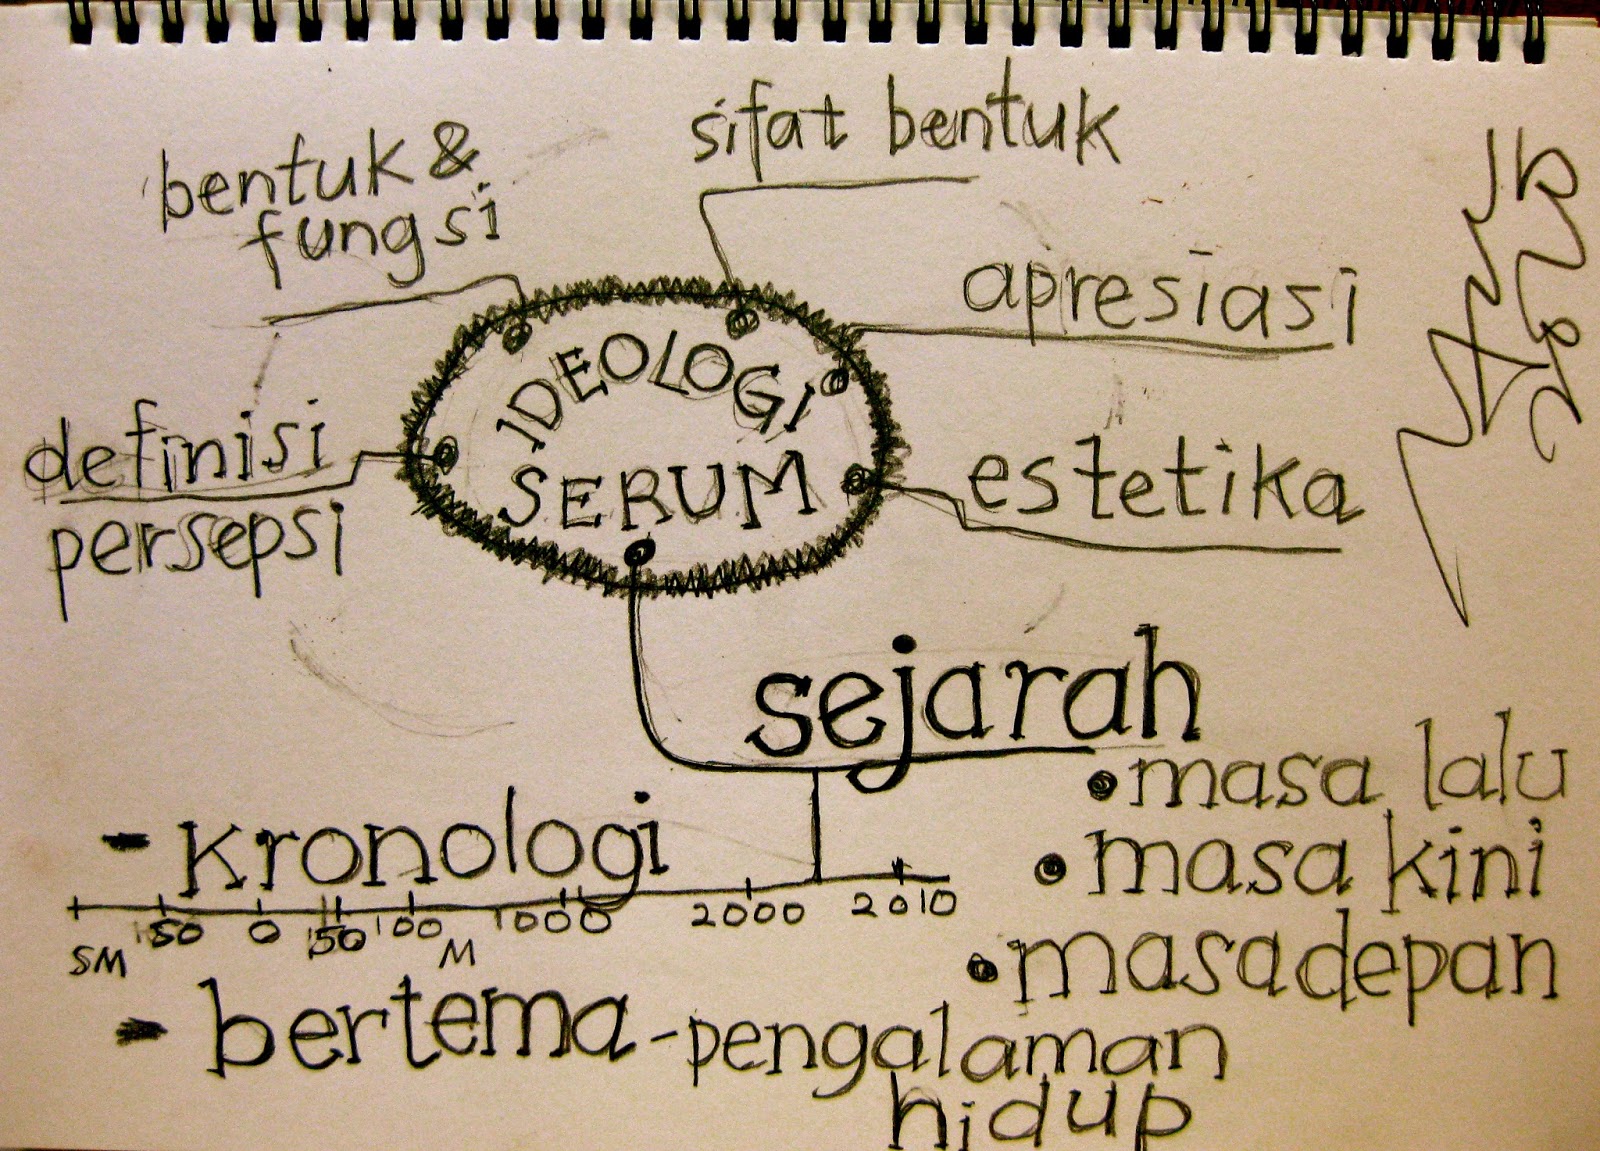 sifat bentuk
bentuk &
fungsi
apresiasi
IDEOLOGI
SERUM
definisi
persepsi
estetika
sejarah
• masa lalu
• masa kini
• masa depan
- kronologi
50 0 50 100 1000 2000 2010
SM M
- bertema - pengalaman
hidup